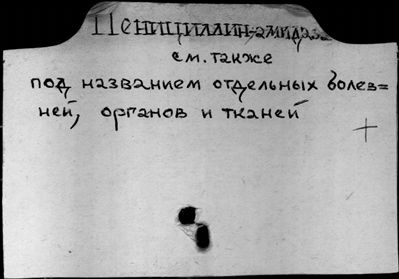 Пенициллин-амидаза
см. также
под названием отдельных болез=
ней, органов и тканей
+